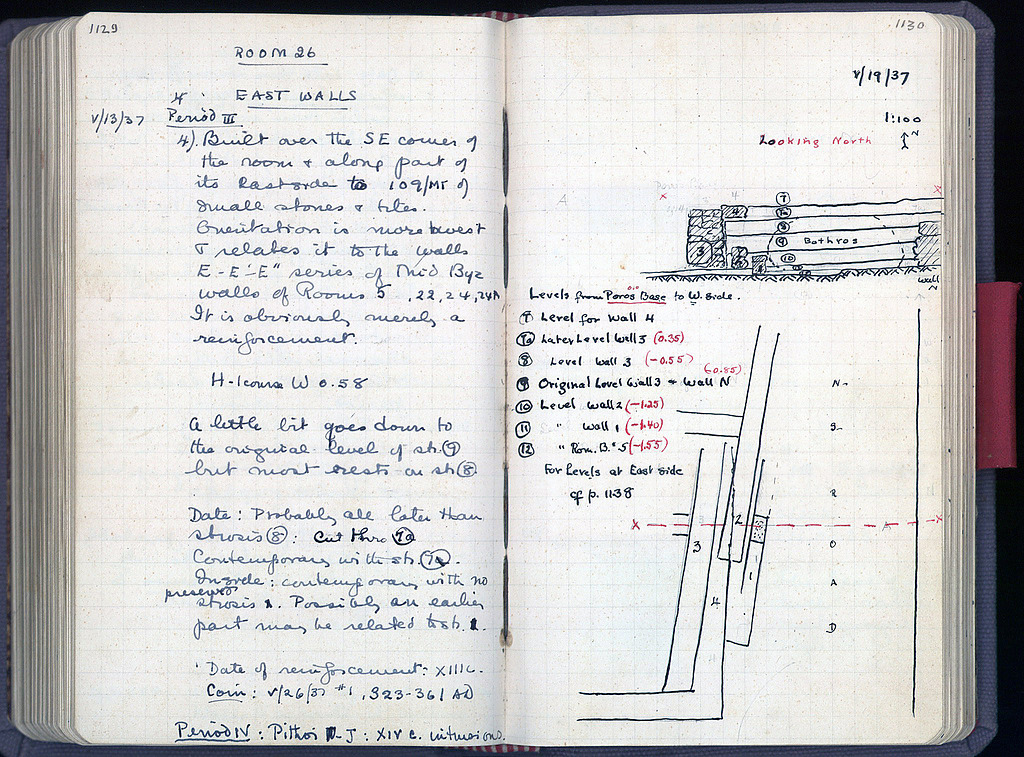 1129
ROOM 26
4. EAST WALLS
V/13/37 Period III
4). Built over the SE corner of
the room & along part of
its East side to 109/MT of
small stones & tiles.
Orientation is more west
& relates it to the walls
E-E'-E" series of Mid Byz
walls of Rooms 5, 22, 24, 24A
It is obviously merely a
reinforcement.
H-1 course W 0.58
A little bit goes down to
the original level of str. ⑨
but most rests on str ⑧
Date: Probably all later than
strosis ⑧: Cut thro ⑦a
Contemporary with str. ⑦a.
Inside: contemporary with no
preserved
strosis. Possibly an earlier
part may be related to str.
Date of reinforcement: XIII c.
Coin: V/26/37 #1, 323-361 AD
Period IV: Pithoi - J: XIV c. intrusions.
1130
V/19/37
1:100
Looking North
N
A
x
x
4
⑦
⑦a
⑧
⑨ Bothros
⑩
3
Wall
N
Levels from Poros Base to W. side.
⑦ Level for Wall 4
⑦a Later Level Wall 3 (0.35)
⑧ Level Wall 3 (-0.55)
(-0.85)
⑨ Original Level Wall 3 & Wall N
⑩ Level Wall 2 (-1.25)
⑪ " Wall 1 (-1.40)
⑫ " Rom. B. 5 (-1.55)
For Levels at East side
cf p. 1138
N
S
R
O
A
D
x
A
x
3
2
1
4